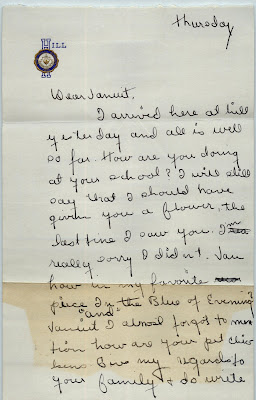 Thursday
HILL
Dear Januit,
I arrived here at hill
yesterday and all is well
so far. How are you doing
at your school? I will still
say that I should have
given you a flower, the
last time I saw you. I'm
really sorry I didn't. You
know in my favorite
piece In the Blue of Evening
"and"
Januit I almost forgot to men
tion how are your pet chick
ens Give my regards to
your family & do write